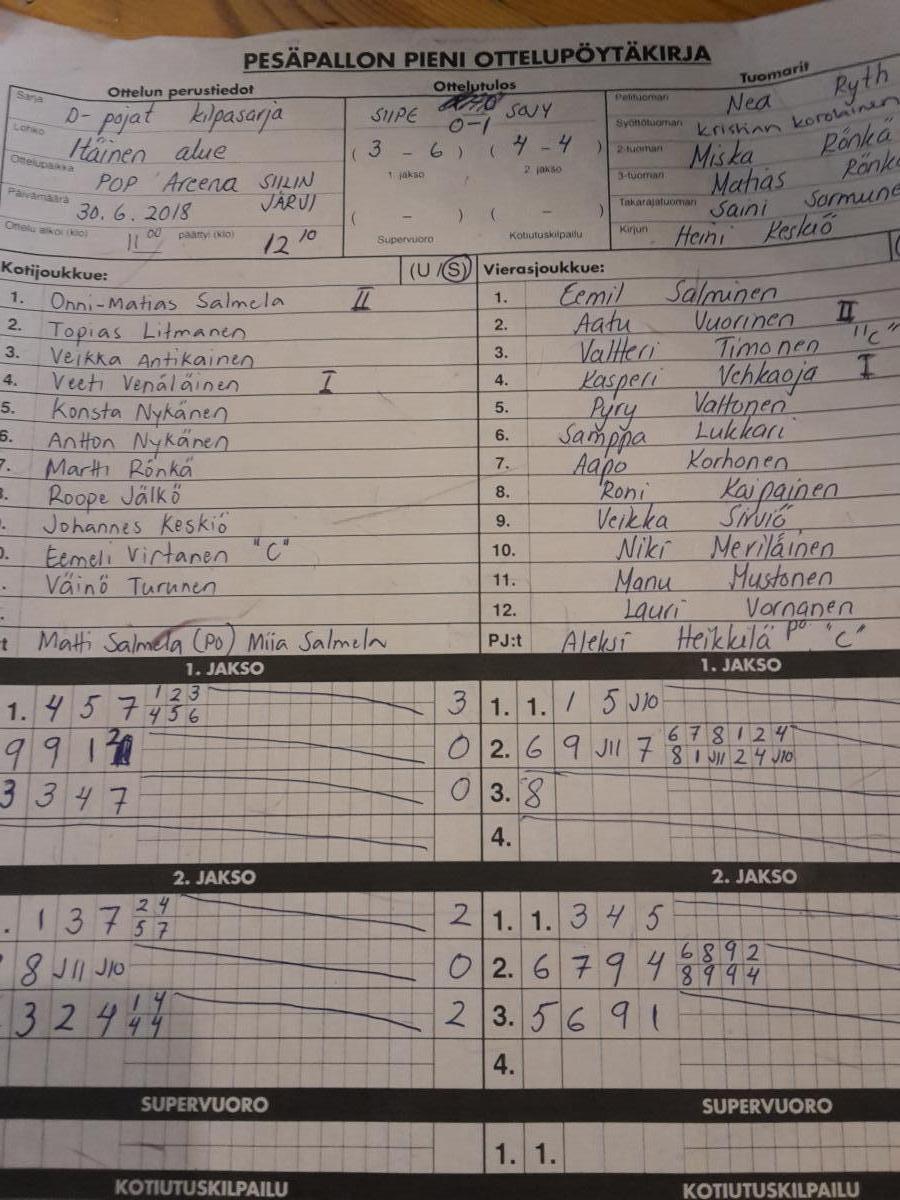 PESÄPALLON PIENI OTTELUPÖYTÄKIRJA
Ottelun perustiedot
Sarja D- pojat kilpasarja
Lohko Itäinen alue
Ottelupaikka POP Areena SIILIN
JÄRVI
Päivämäärä 30.6.2018
Ottelu alkoi (klo) 11 00 päättyi (klo) 12 10
Ottelutulos
SIIPE 0-1 SOJY
( 3 - 6 ) ( 4 - 4 )
1. jakso 2. jakso
( - ) ( - )
Supervuoro Kotiutuskilpailu
Tuomarit
Pelituomari Nea Ryth
Syöttötuomari Kristian Korolainen
2-tuomari Miska Rönkä
3-tuomari Matias Rönkä
Takarajatuomari Saini Sormune
Kirjuri Heini Keskiö
Kotijoukkue: (U / S)
1. Onni-Matias Salmela II
2. Topias Litmanen
3. Veikka Antikainen
4. Veeti Venäläinen I
5. Konsta Nykänen
6. Antton Nykänen
7. Martti Rönkä
8. Roope Jälkö
. Johannes Keskiö
0. Eemeli Virtanen "C"
. Väinö Turunen
.
t Matti Salmela (PO) Miia Salmela
Vierasjoukkue:
1. Eemil Salminen
2. Aatu Vuorinen II
3. Valtteri Timonen "C"
4. Kasperi Vehkaoja I
5. Pyry Valtonen
6. Samppa Lukkari
7. Aapo Korhonen
8. Roni Kaipainen
9. Veikka Sirviö
10. Niki Meriläinen
11. Manu Mustonen
12. Lauri Vornanen
PJ:t Aleksi Heikkilä po. "C"
1. JAKSO
1. 4 5 7 1 2 3 3
4 5 6
9 9 1 2 0
3 3 4 7 0
2. JAKSO
. 1 3 7 2 4 2
5 7
8 J11 J10 0
3 2 4 1 4 2
4 4
SUPERVUORO
KOTIUTUSKILPAILU
1. JAKSO
1. 1. 1 5 J10
2. 6 9 J11 7 6 7 8 1 2 4
8 1 J11 2 4 J10
3. 8
4.
2. JAKSO
1. 1. 3 4 5
2. 6 7 9 4 6 8 9 2
8 9 9 4
3. 5 6 9 1
4.
SUPERVUORO
1. 1.
KOTIUTUSKILPAILU